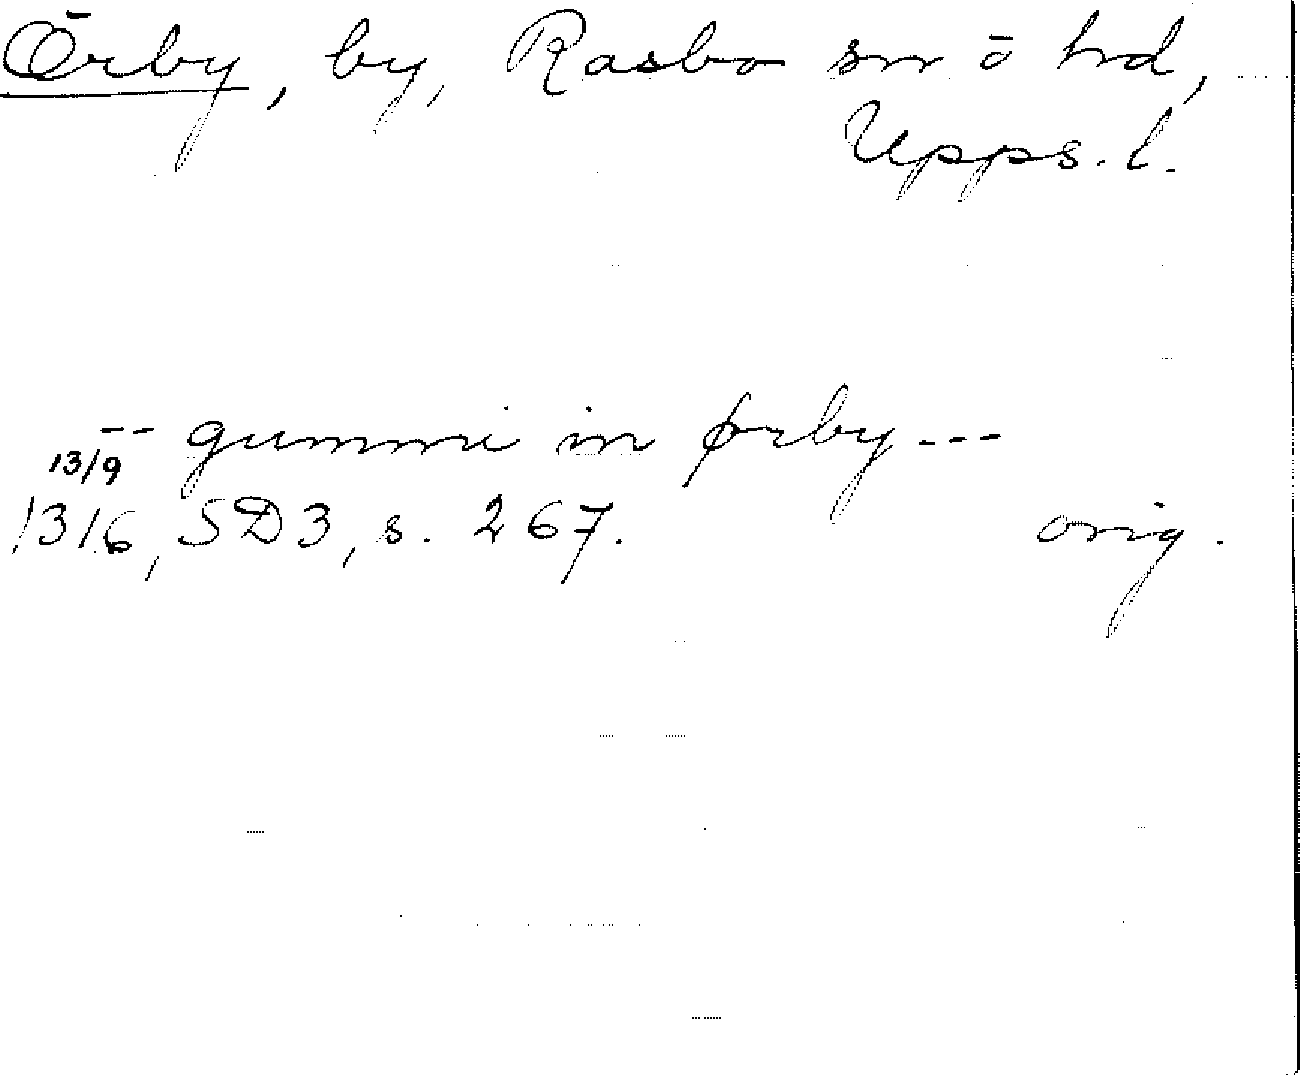 Örby, by, Rasbo sn o hd,
Upps. l.
-- gummi in ørby ---
13/9
1316, SD3, s. 267. orig.